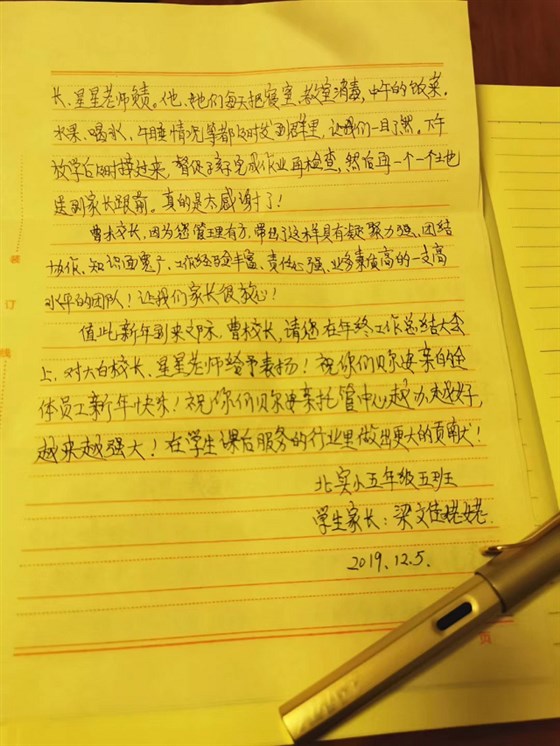 长、星星老师负责。他、她们每天把寝室、教室消毒,中午的饭菜、
水果、喝水、午睡情况等都及时发到群里,让我们一目了然。下午
放学后及时接过来,督促孩子完成作业再检查,然后再一个一个地
送到家长跟前。真的是太感谢了!
曹校长,因为您管理有方,带出了这样具有凝聚力强、团结
协作、知识面宽广、工作经验丰富、责任心强、业务素质高的一支高
水平的团队!让我们家长很放心!
值此新年到来之际,曹校长,请您在年终工作总结大会
上,对大白校长、星星老师给予表扬!祝你们贝尔安亲的全
体员工新年快乐!祝你们贝尔安亲托管中心越办越好,
越来越强大!在学生课后服务的行业里做出更大的贡献!
北实小五年级五班
学生家长:梁文佳姥姥
2019.12.5.
装
订
线
页